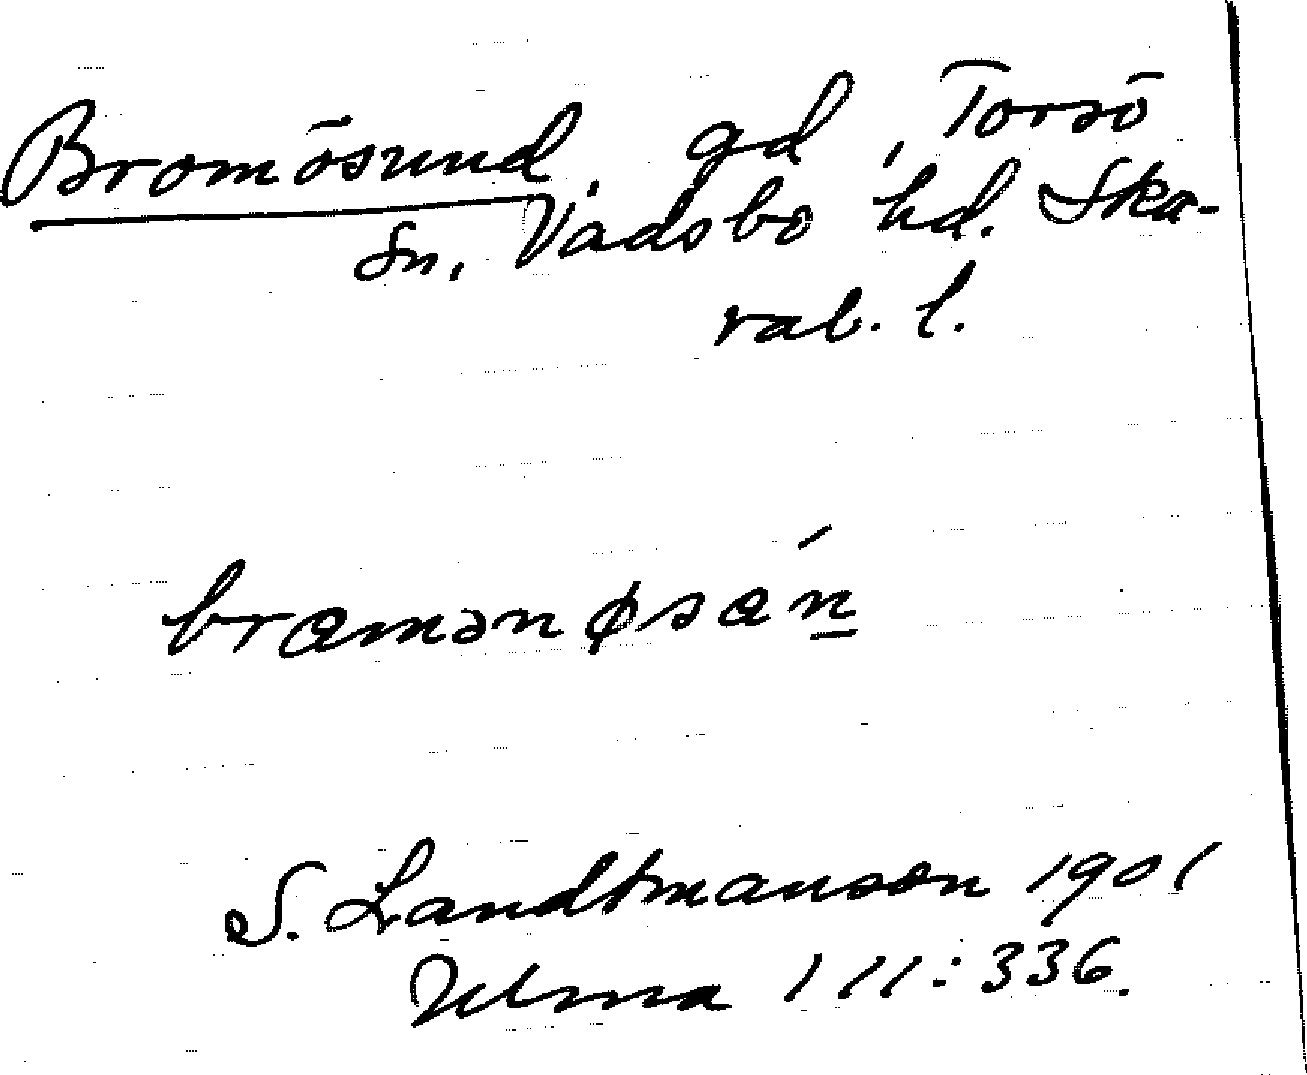 Bromösund, gd, Torsö
sn. Vadsbo hd. Ska-
rab. l.
bramǝnøsan
S. Landtmanson 1901
Ulma 111:336.